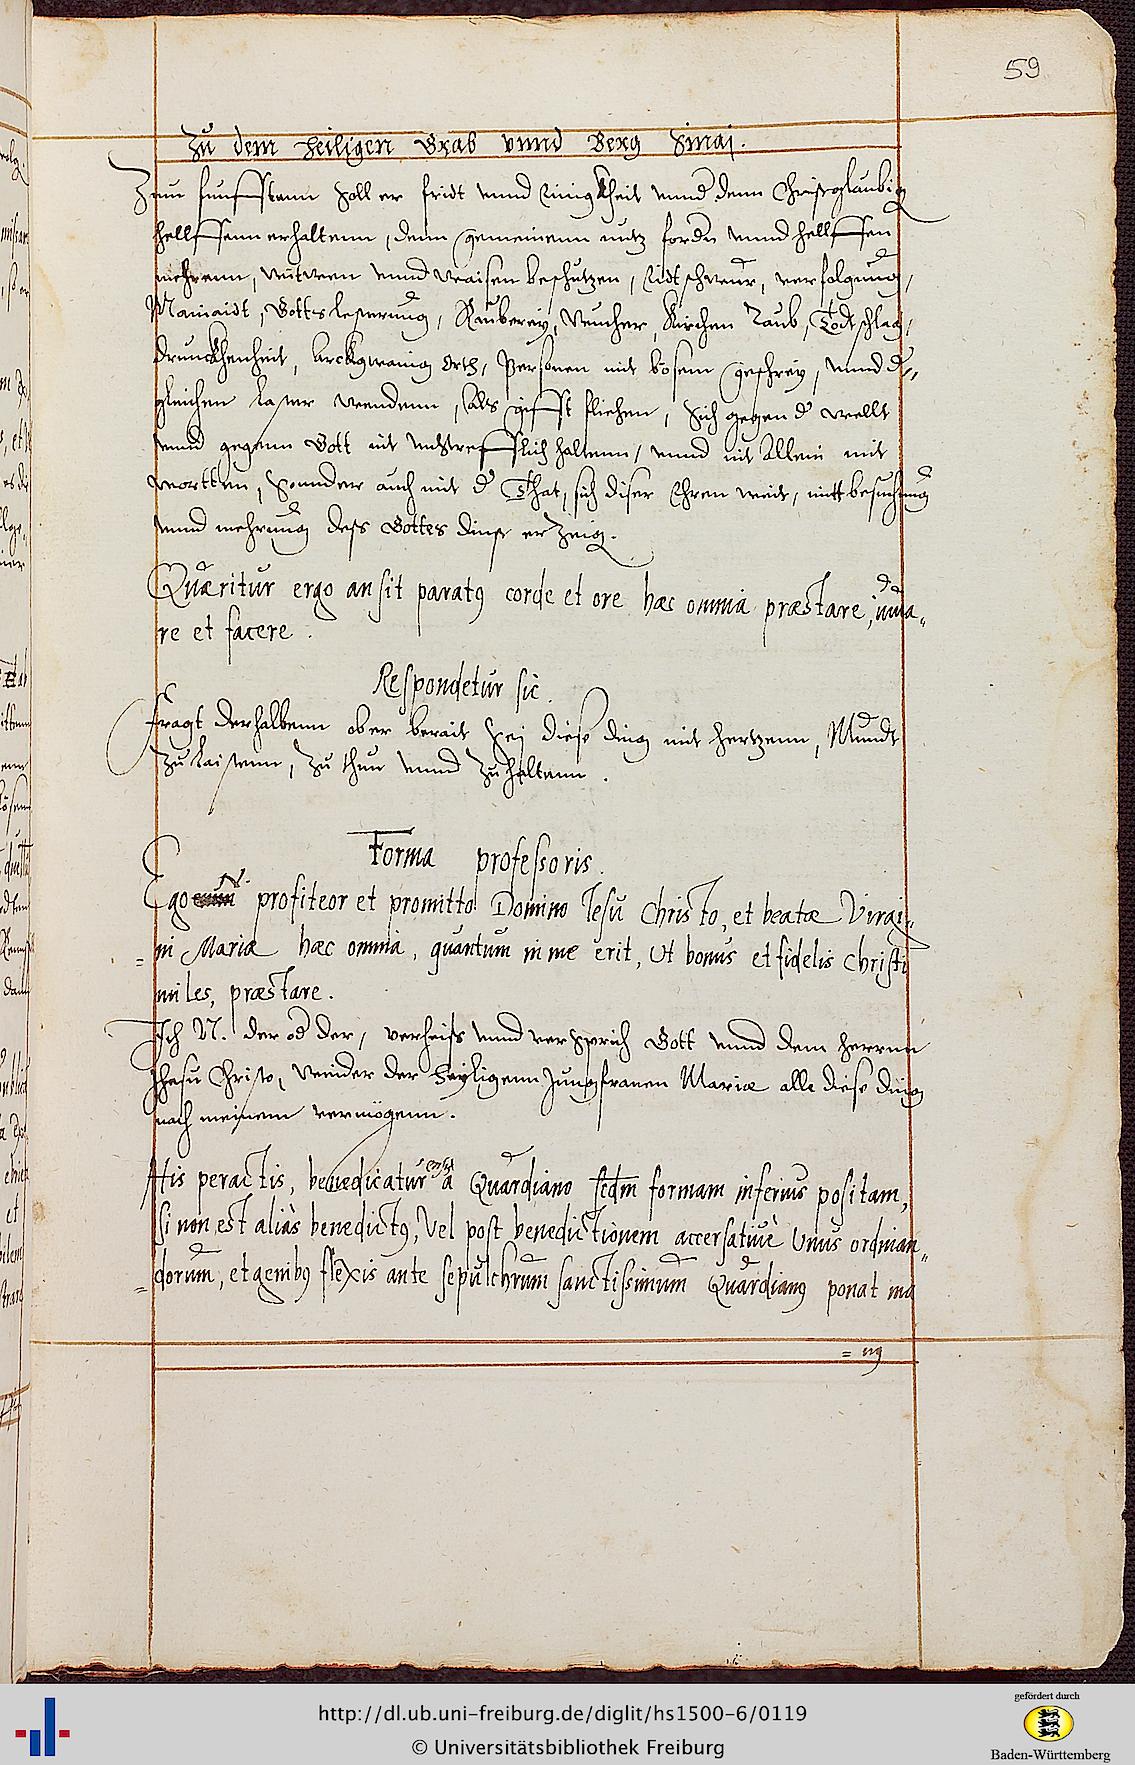 59
Zu dem heiligen Grab vnnd Berg Sinaj.
Zum funfften soll er fridt vnnd Einigkheit vnnd denn Christglaubig
helffenn erhaltenn, denn gemeinenn nutz fordn vnnd helffen
mehrenn, witwen vnnd waisen beschutzen, Eidtschwur, verfolgung,
Mainaidt, Gottslesterung, Rauberey, Wucher, Kirchen Raub, Todtschlag,
drunckhenheit, Arckgwenig Orth, Personen mit bösem geschrey, vnnd d'
gleichen laster meidenn, als gifft fliehen, sich gegen d' wellt
vnnd gegenn Gott nit vnstrefflich haltenn, vnnd nit Allein mit
wortten, Sonnder auch mit d' That, sich diser Ehren werdt, mitt besuchung
vnnd mehrung dess Gottes dinst erzeig.
Quæritur ergo an sit paratus corde et ore hæc omnia præstare, iura-
re et facere.
Respondetur sic.
Fragt derhalbenn ob er berait sej diese ding mit hertzenn, Mundt
Zulaistenn, Zu thun vnnd Zuhaltenn.
Forma professoris.
Ego N. profiteor et promitto Domino Iesu Christo, et beatæ Virgi-
=ni Mariæ hæc omnia, quantum in me erit, Ut bonus et fidelis Christi
miles, præstare.
Ich N. der od der, verheiss vnnd versprich Gott vnnd dem herrnn
Jhesu Christo, Wieder der heyligenn Jungfrauen Mariæ alle diese ding
nach meinem vermögenn.
His peractis, benedicatur ensis a Quardiano scdm formam inferius positam,
si non est aliàs benedictus, Vel post benedictionem accersatiuè Unus ordinan-
=dorum, et genibus flexis ante sepulchrum sanctissimum Quardianus ponat ma
=nus
http://dl.ub.uni-freiburg.de/diglit/hs1500-6/0119
© Universitätsbibliothek Freiburg
gefördert durch
Baden-Württemberg